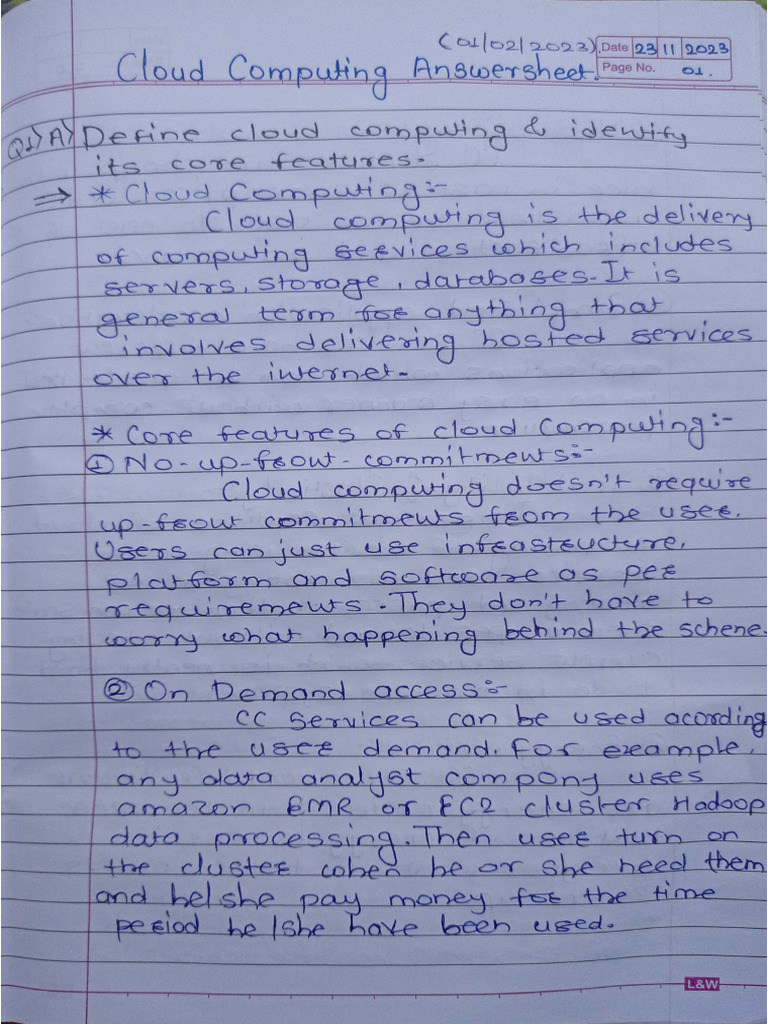 (01/02/2023). Date 23 11 2023
Cloud Computing Answersheet. Page No. 01.
Q1) A) Define cloud computing & identify
its core features.
⇒ * Cloud Computing:-
Cloud computing is the delivery
of computing services which includes
servers, storage, databases. It is
general term for anything that
involves delivering hosted services
over the internet.
* Core features of cloud Computing:-
① No-up-front-commitments:-
Cloud computing doesn't require
up-front commitments from the user.
Users can just use infrastructure,
platform and software as per
requirements. They don't have to
worry what happening behind the schene.
② On Demand access:-
CC Services can be used acording
to the user demand. For example,
any data analyst compony uses
amazon EMR or EC2 cluster Hadoop
data processing. Then user turn on
the cluster when he or she need them
and he/she pay money for the time
period he/she have been used.
L&W